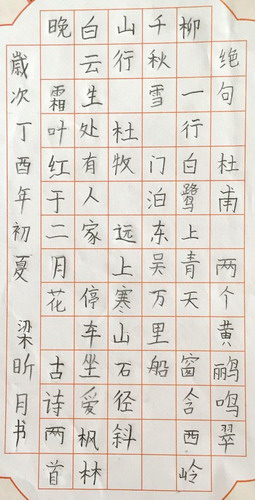 绝句 杜甫 两个黄鹂鸣翠
柳 一行白鹭上青天 窗含西岭
千秋雪 门泊东吴万里船
山行 杜牧 远上寒山石径斜
白云生处有人家 停车坐爱枫林
晚 霜叶红于二月花 古诗两首
歲次丁酉年初夏 梁昕月书